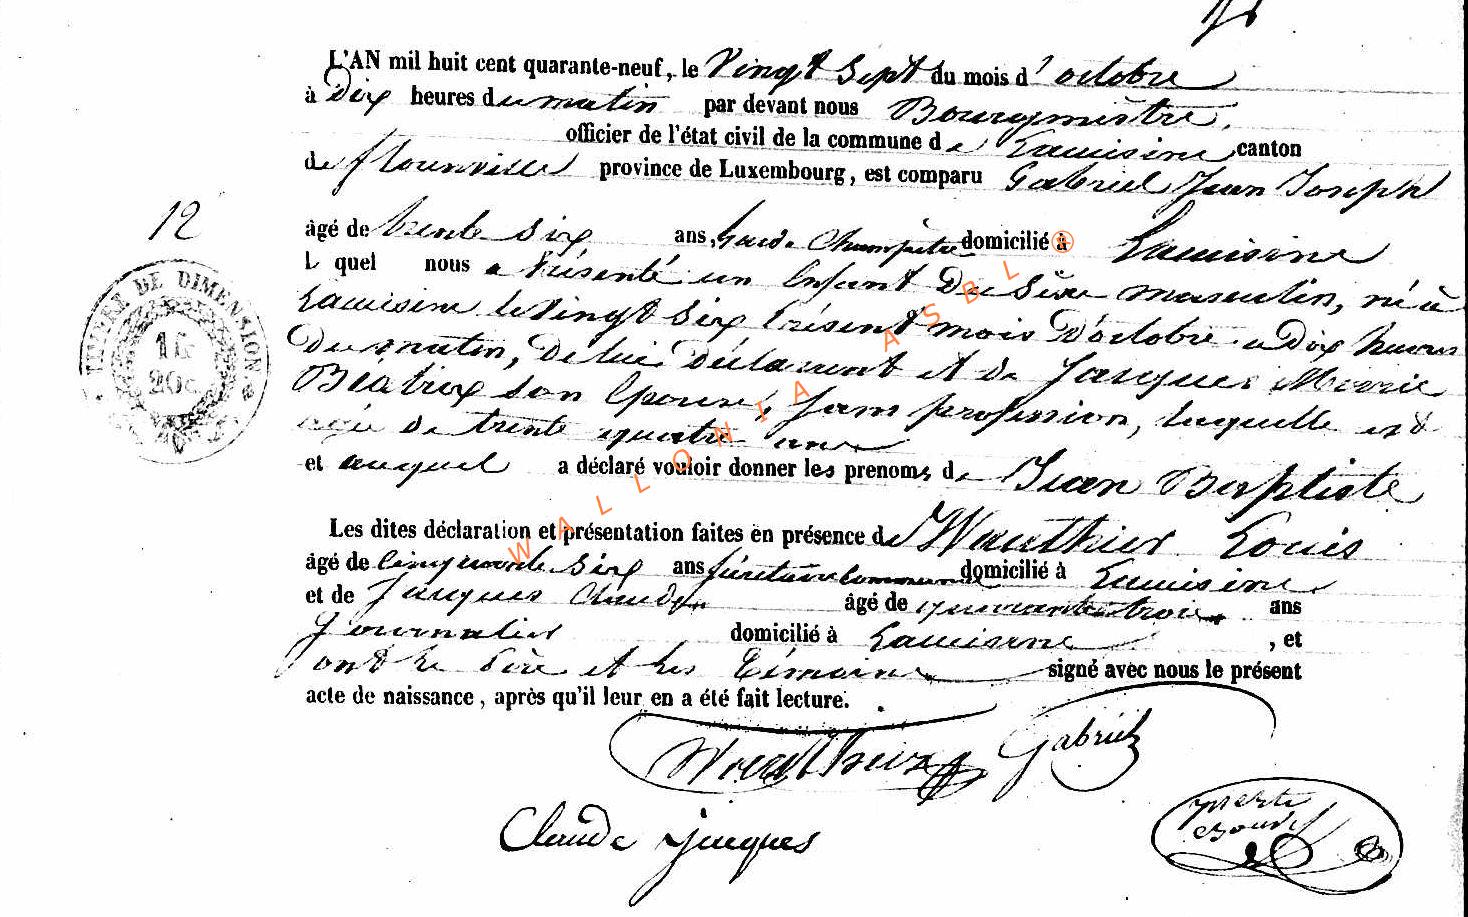 L'AN mil huit cent quarante-neuf, le Vingt Sept du mois d' octobre
à Dix heures du matin par devant nous Bourgmestre,
officier de l'état civil de la commune de Lacuisine canton
de florenville province de Luxembourg, est comparu Gabriel Jean Joseph
12
âgé de trente Six ans, Garde Champêtre domicilié à Lacuisine
L quel nous a Présenté un Enfant Du Sexe masculin, né à
Lacuisine le Vingt Six Présent mois D'octobre a Dix heures
Du matin, De lui Déclarant et de Jacques Marie
Beatrix Son Epouse, Sans profession, laquelle est
agée de trente quatre ans
et auquel a déclaré vouloir donner les prenoms de Jean Baptiste
Les dites déclaration et présentation faites en présence de Wauthier Louis
âgé de Cinquante Six ans Sécrétaire Communal domicilié à Lacuisine
et de Jacques Claude âgé de quarante trois ans
Journalier domicilié à Lacuisine, et
ont le Père et les Témoins signé avec nous le présent
acte de naissance, après qu'il leur en a été fait lecture.
Wauthier Gabriel
Claude Jacques
TIMBRE DE DIMENSION
WALLONIA ASBL ®